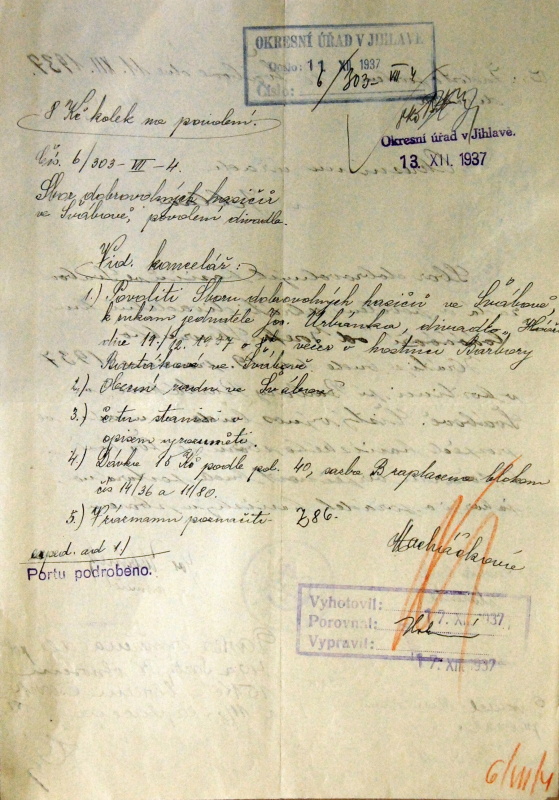 OKRESNÍ ÚŘAD V JIHLAVĚ
Došlo: 11. XII. 1937
Číslo: 6/303-VII-4
Okresní úřad v Jihlavě.
13. XII. 1937
8 Kč kolek na povolení.
Čís. 6/303-VII-4.
Sbor dobrovolných hasičů
ve Švábově, povolení divadla.
Vid. kancelář:
1.) Povoliti Sboru dobrovolných hasičů ve Švábově,
k rukám jednatele Jos. Urbánka, divadlo
dne 19./12. 1937 o večer v hostinci Barbory
Bartákové ve Švábově
2.) Obecní radu ve Švábově
3.) četn. stanici v
opisem vyrozuměti.
4.) Dávka 10 Kč podle pol. 40, sazba B zaplacena blokem
čís 14/36 a 11/80.
5.) V seznamu poznačiti. 286.
exped. ad 1.)
Portu podrobeno.
Vyhotovil:
Porovnal: 17. XII. 1937
Vypravil:
17. XII. 1937
6/VII/4